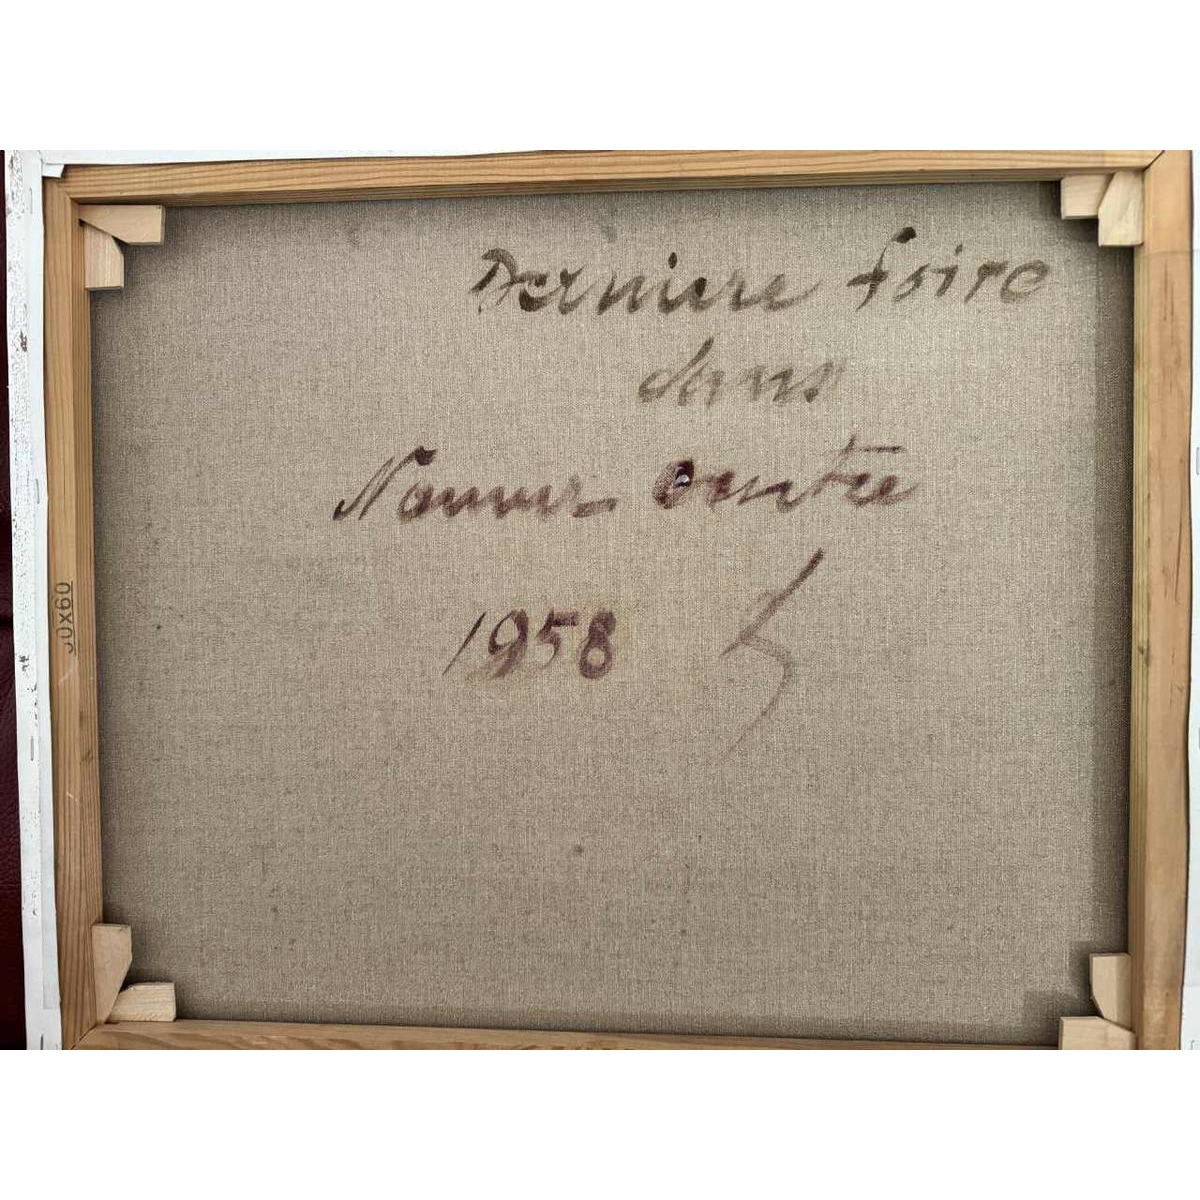 Derniere foire
dans
Namur Centre
1958
60